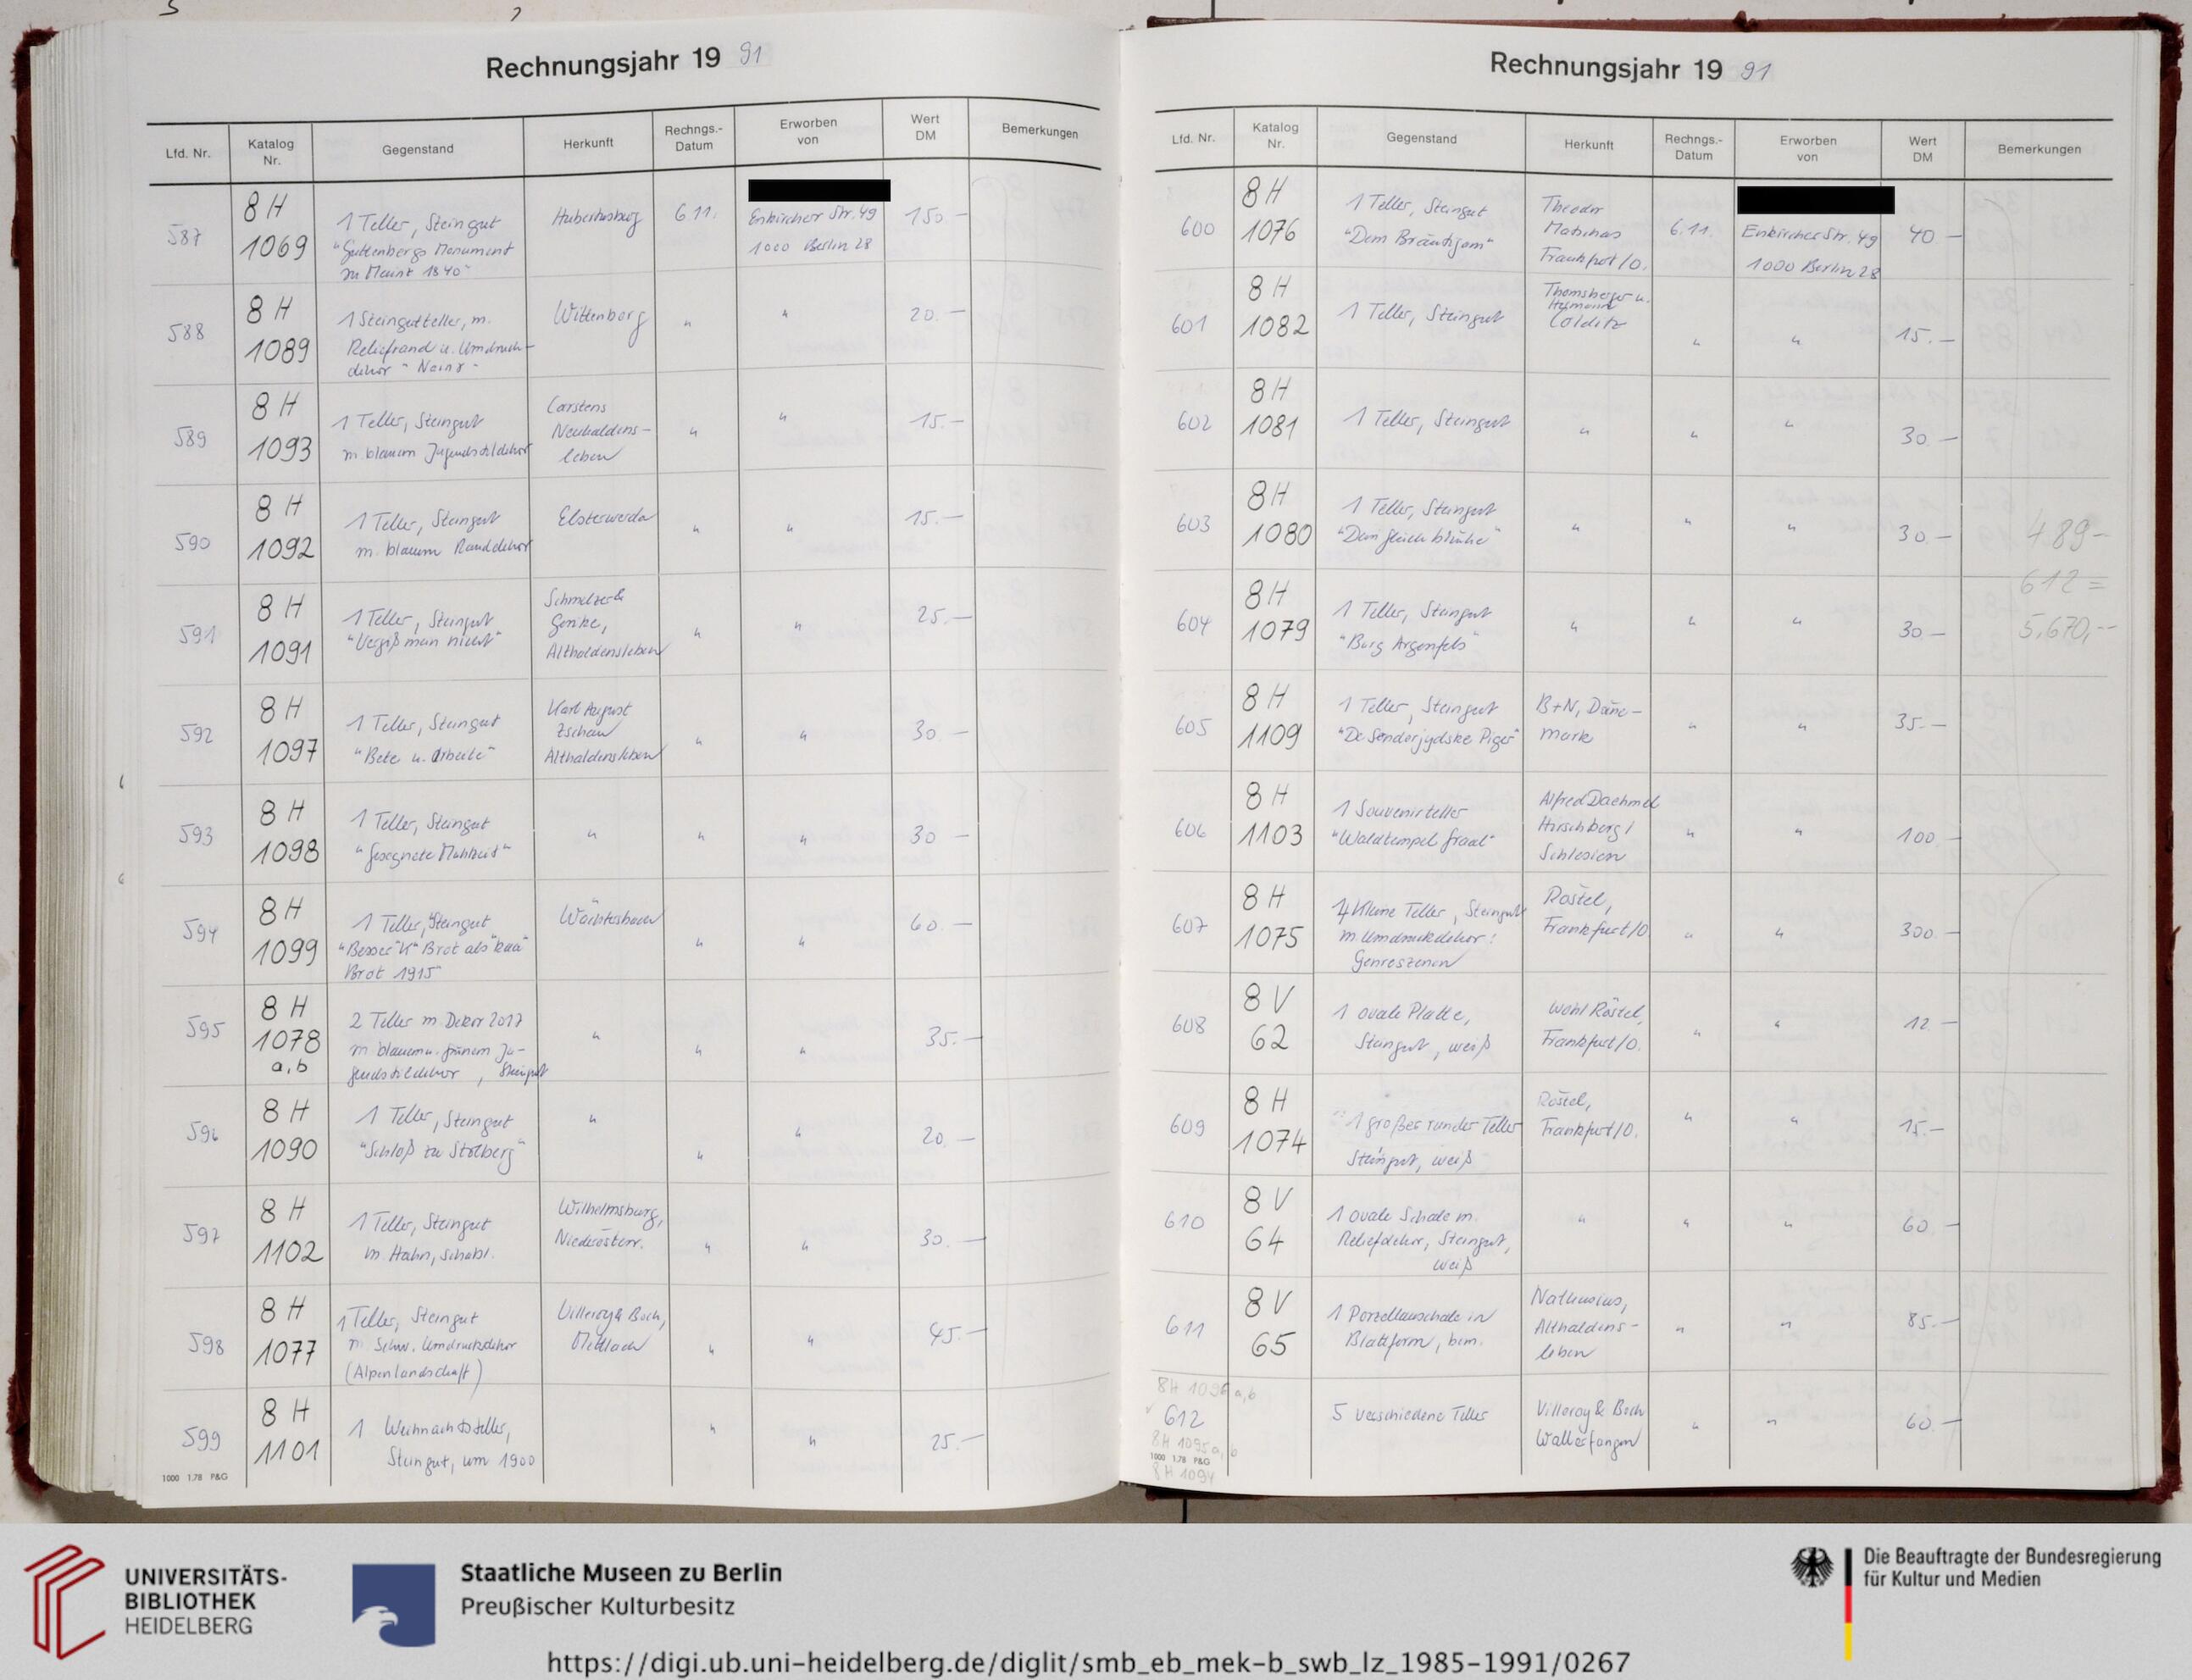 Rechnungsjahr 19 91
Lfd. Nr. Katalog Nr. Gegenstand Herkunft Rechngs.-Datum Erworben von Wert DM Bemerkungen
587 8 H 1069 1 Teller, Steingut Hubertusburg 6.11. Enkircher Str. 49 150.—
"Guttenbergs Monument 1000 Berlin 28
zu Mainz 1840"
588 8 H 1089 1 Steingutteller, m. Wittenberg " " 20.—
Reliefrand u. Umdruck-
dekor
589 8 H 1093 1 Teller, Steingut Carstens " " 15.—
m. blauem Jugendstildekor Neuhaldens-
leben
590 8 H 1092 1 Teller, Steingut Elsterwerda " " 15.—
m. blauem Randdekor
591 8 H 1091 1 Teller, Steingut Schmelzer & " " 25.—
"Vergiß man nicht" Gerike,
Althaldensleben
592 8 H 1097 1 Teller, Steingut Karl August " " 30.—
"Bete u. Arbeite" Zschau
Althaldensleben
593 8 H 1098 1 Teller, Steingut " " " 30 —
"Gesegnete Mahlzeit"
594 8 H 1099 1 Teller, Steingut Wächtersbach " " 60.—
"Besser "K" Brot als "kaa"
Brot 1915"
595 8 H 1078 a,b 2 Teller m. Dekor 2017 " " " 35.—
m. blauem u. grünem Ju-
gendstildekor, Steingut
596 8 H 1090 1 Teller, Steingut " " " 20.—
"Schloß zu Stolberg"
597 8 H 1102 1 Teller, Steingut Wilhelmsburg, " " 30.—
m. Hahn, Schabl. Niederösterr.
598 8 H 1077 1 Teller, Steingut Villeroy & Boch, " " 45.—
m. Schw. Umdruckdekor Mettlach
(Alpenlandschaft)
599 8 H 1101 1 Weihnachtsteller, " " 25.—
Steingut, um 1900
1000 1.78 P&G
Rechnungsjahr 19 91
Lfd. Nr. Katalog Nr. Gegenstand Herkunft Rechngs.-Datum Erworben von Wert DM Bemerkungen
600 8 H 1076 1 Teller, Steingut Theodor 6.11. Enkircher Str. 49 40.—
"Dem Bräutigam" 1000 Berlin 28
Frankfurt/O.
601 8 H 1082 1 Teller, Steingut Thomsberger u. " " 15.—
Hermann
Colditz
602 8 H 1081 1 Teller, Steingut " " " 30.—
603 8 H 1080 1 Teller, Steingut " " " 30.—
"Dein Glück blühe" 489—
604 8 H 1079 1 Teller, Steingut " " " 30—
"Burg Argenfels" 612 =
5.670,--
605 8 H 1109 1 Teller, Steingut B+N, Däne- " " 35.—
"De Sønderjydske Piger" mark
606 8 H 1103 1 Souvenirteller Alfred Daehmel " " 100.—
"Waldtempel Graal" Hirschberg/
Schlesien
607 8 H 1075 4 kleine Teller, Steingut Röstel, " " 300.—
m. Umdruckdekor: Frankfurt/O
Genreszenen
608 8 V 62 1 ovale Platte, wohl Röstel, " " 12.—
Steingut, weiß Frankfurt/O.
609 8 H 1074 1 großer runder Teller Röstel, " " 15.—
Steingut, weiß Frankfurt/O.
610 8 V 64 1 ovale Schale m. " " " 60.—
Reliefdekor, Steingut,
weiß
611 8 V 65 1 Porzellanschale in Nathusius, " " 85.—
Blattform, bem. Althaldens-
leben
8H 1096 a,b
612 5 verschiedene Teller Villeroy & Boch " " 60.—
Wallerfangen
8H 1095 a, b
1000 1.78 P&G
8 H 1094
UNIVERSITÄTS-
BIBLIOTHEK
HEIDELBERG
Staatliche Museen zu Berlin
Preußischer Kulturbesitz
Die Beauftragte der Bundesregierung
für Kultur und Medien
https://digi.ub.uni-heidelberg.de/diglit/smb_eb_mek-b_swb_lz_1985-1991/0267